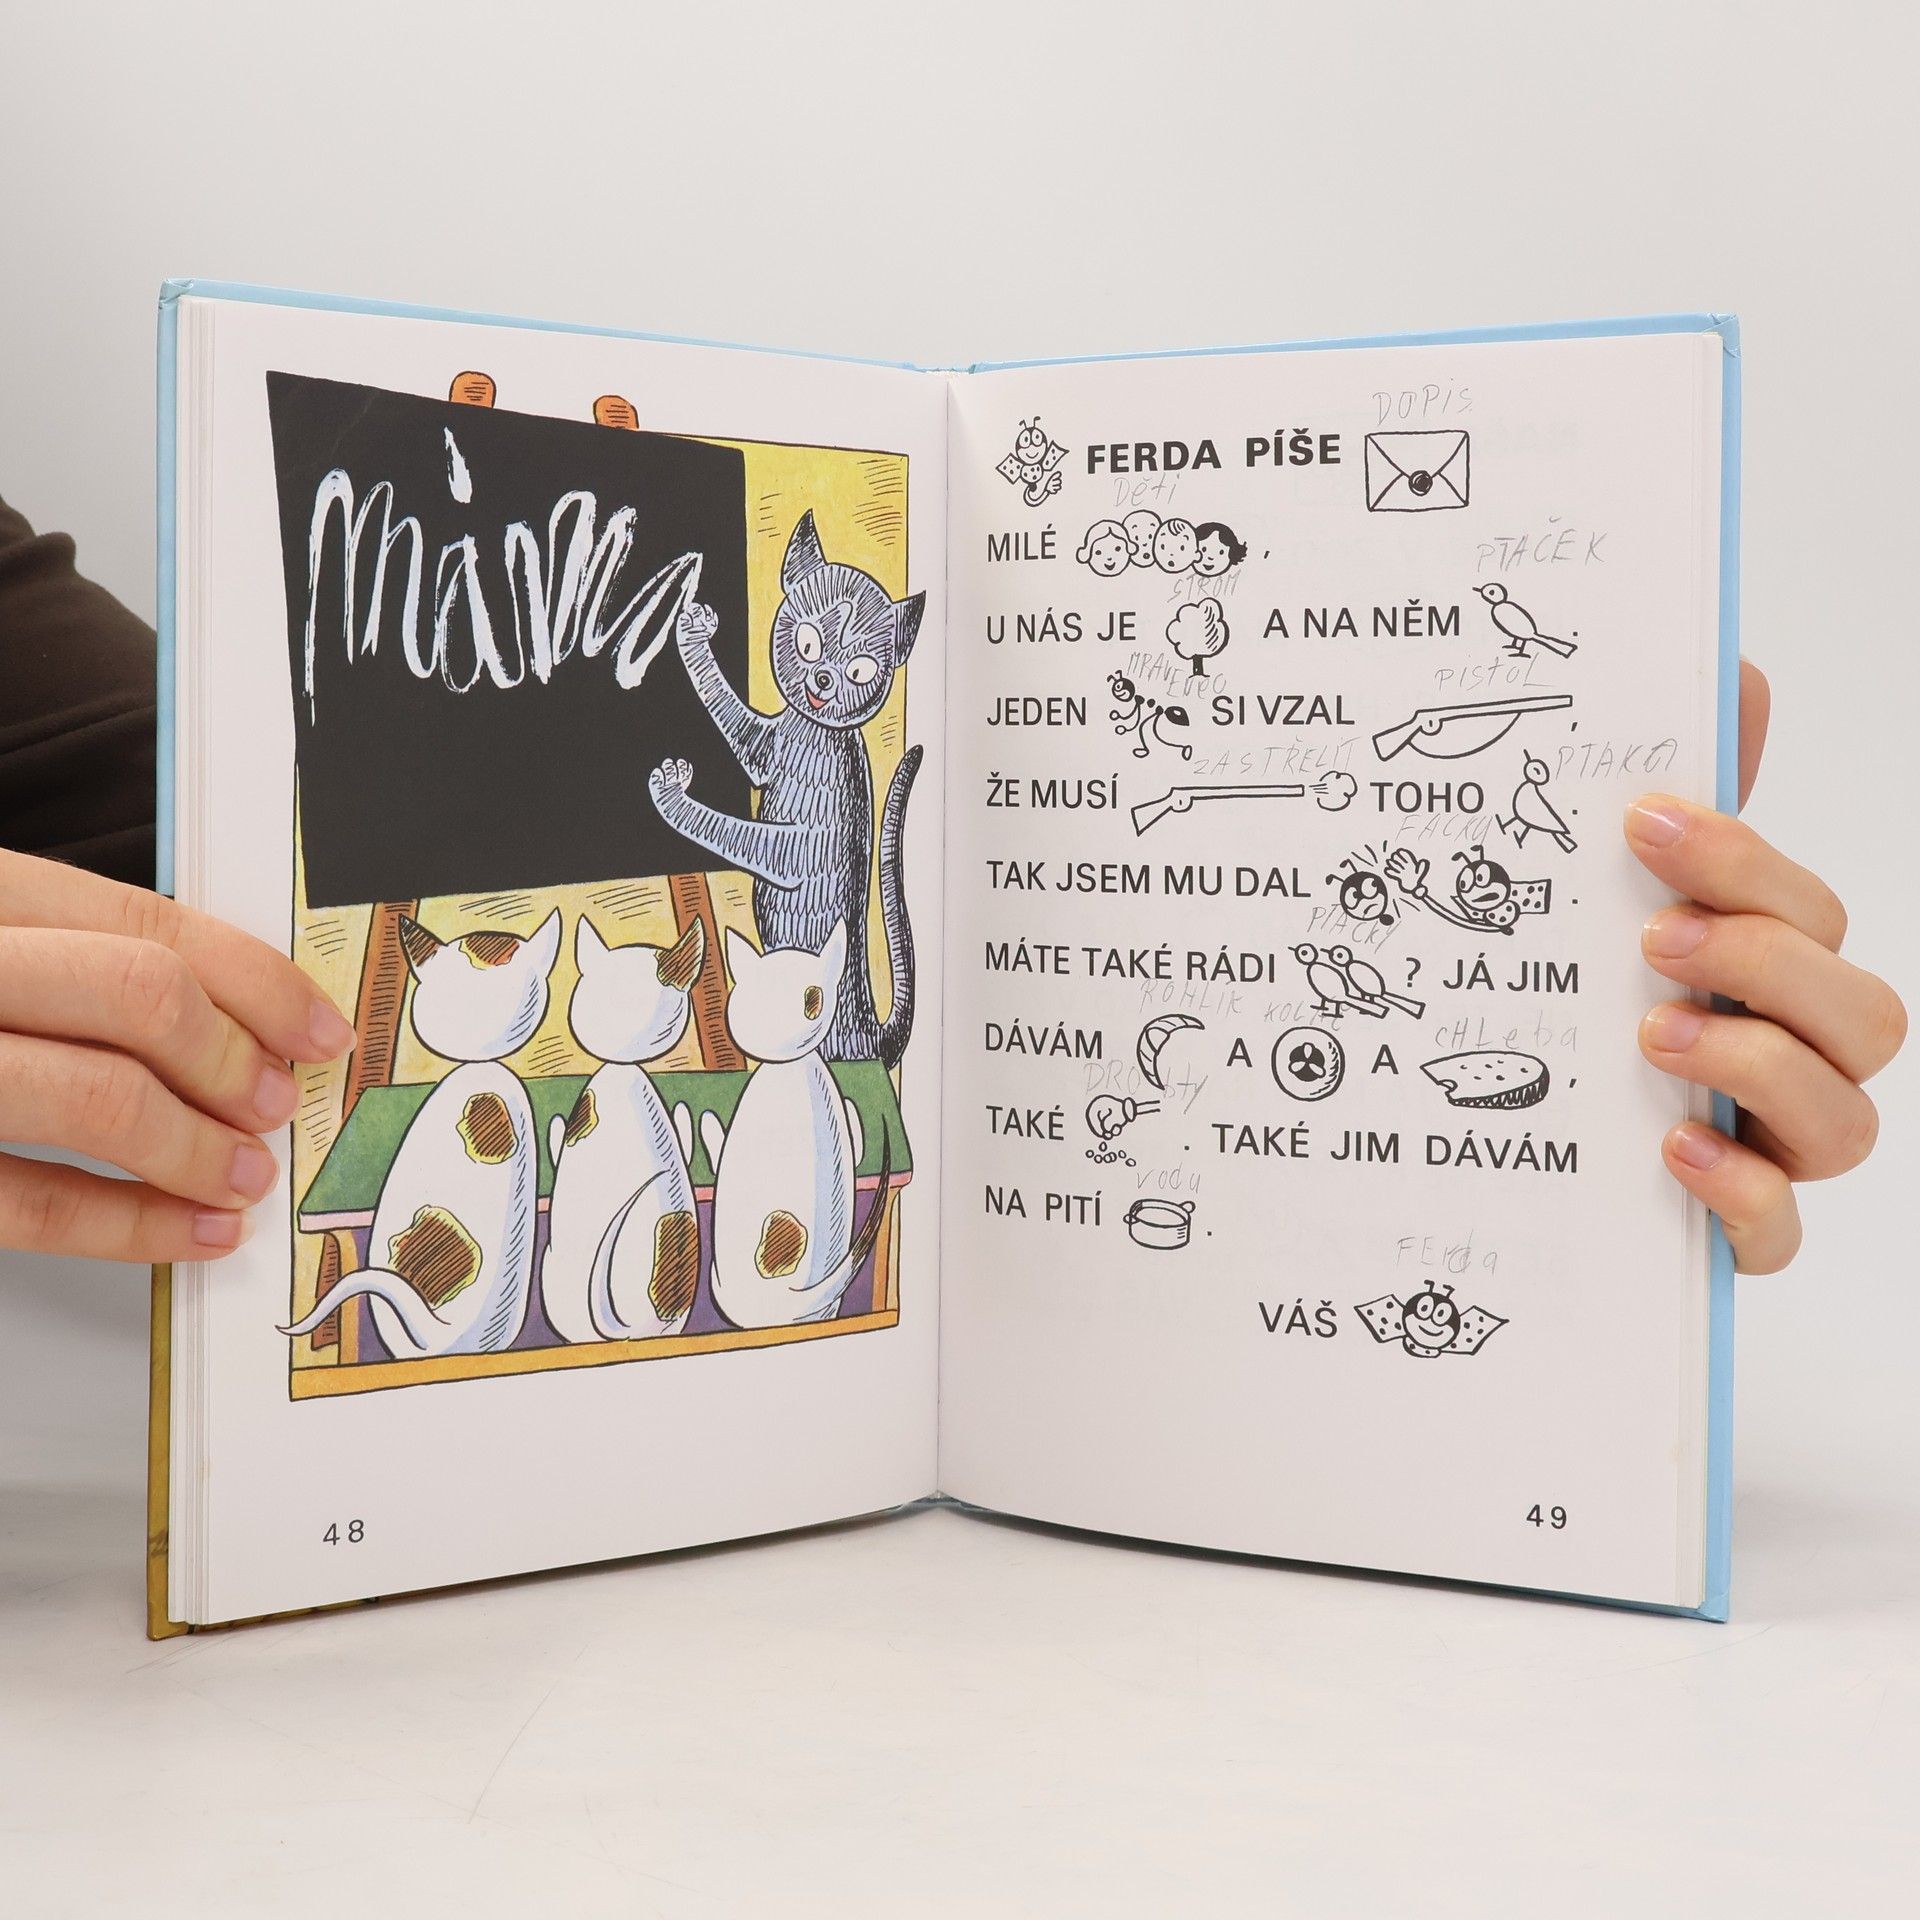 máma
48
DOPiS
FERDA PÍŠE
Děti
MILÉ ,
PTAČEK
STROM
U NÁS JE A NA NĚM .
MRAVENEC
PiSTOL
JEDEN SI VZAL ,
ZASTŘELIT
PTAKA
ŽE MUSÍ TOHO .
FACKU
TAK JSEM MU DAL .
PTAČKY
MÁTE TAKÉ RÁDI ? JÁ JIM
ROHLÍK KOLAČ cHLeba
DÁVÁM A A ,
DROBty
TAKÉ . TAKÉ JIM DÁVÁM
vodu
NA PITÍ .
FErda
VÁŠ
49